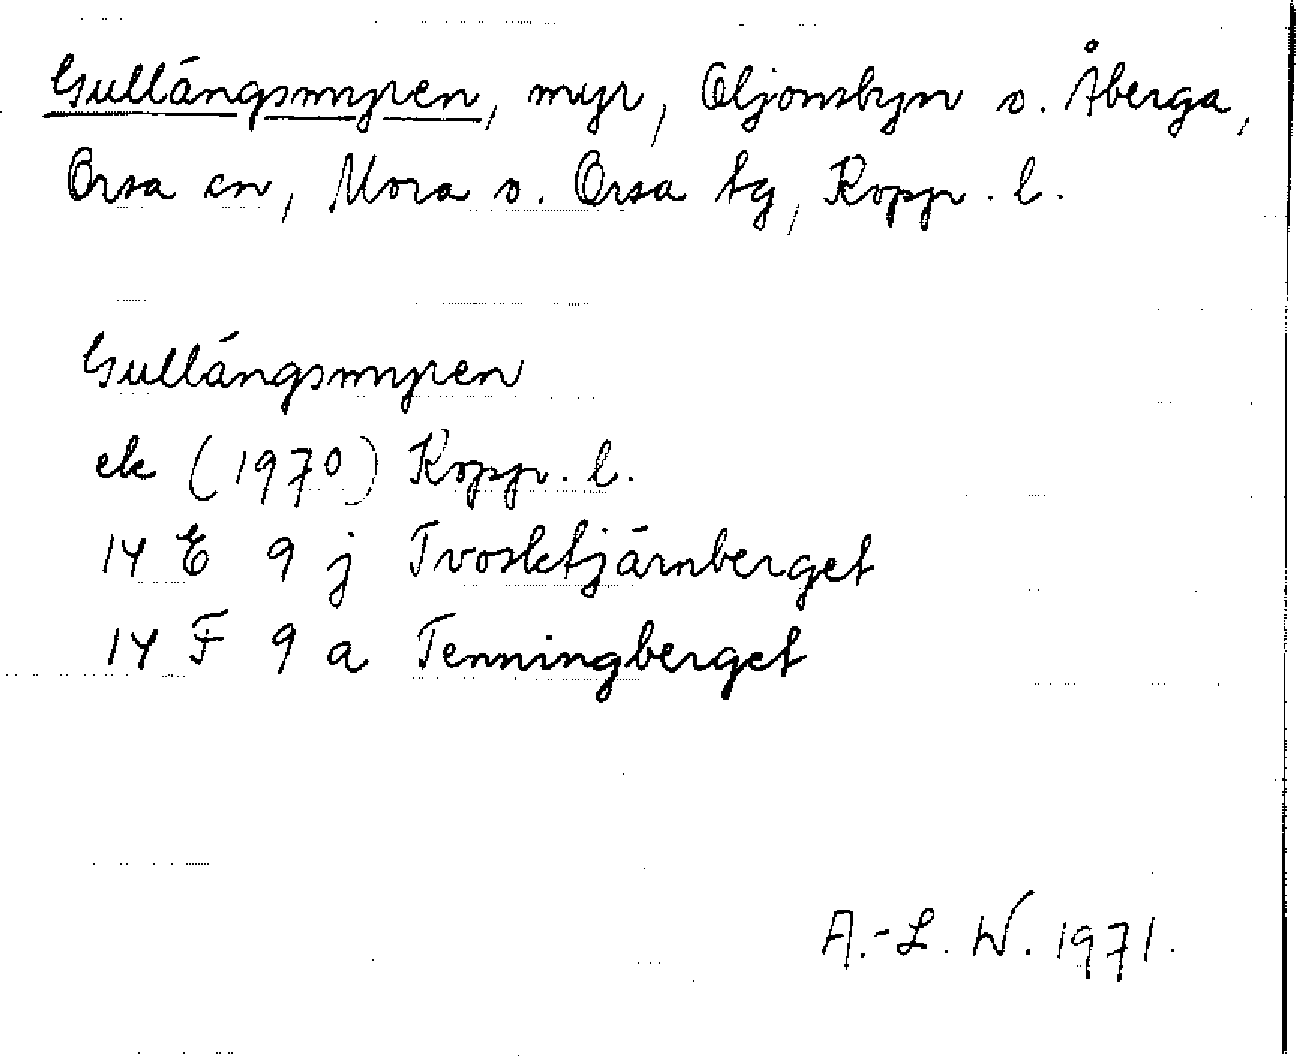 Gullängsmyren, myr, Oljonsbyn o. Åberga,
Orsa sn, Mora o. Orsa tg, Kopp. l.
Gullängsmyren
ek (1970) Kopp. l.
14 E 9 j Tvosktjärnberget
14 F 9 a Tenningberget
A.-L. W. 1971.